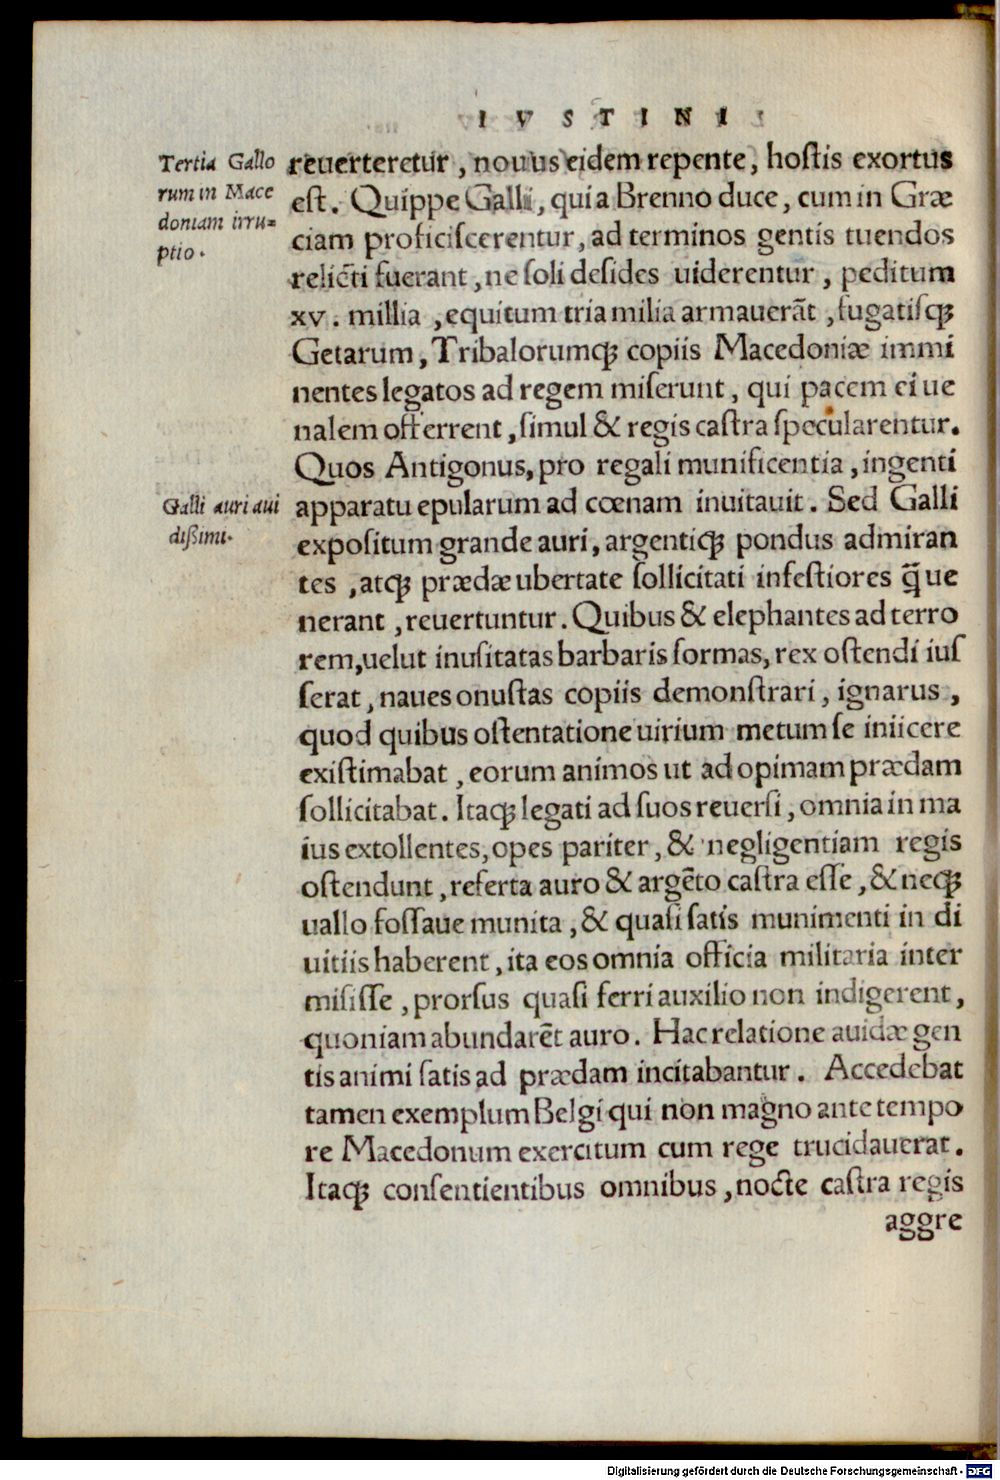 IVSTINI
Tertia Gallo
rum in Mace
doniam irru=
ptio.
reuerteretur, nouus eidem repente, hostis exortus
est. Quippe Galli, qui a Brenno duce, cum in Græ
ciam proficiscerentur, ad terminos gentis tuendos
relicti fuerant, ne soli desides uiderentur, peditum
xv. millia, equitum tria milia armauerãt, fugatisq́;
Getarum, Tribalorumq́; copiis Macedoniæ immi
nentes legatos ad regem miserunt, qui pacem ei ue
nalem offerrent, simul & regis castra specularentur.
Quos Antigonus, pro regali munificentia, ingenti
Galli auri aui
dißimi.
apparatu epularum ad cœnam inuitauit. Sed Galli
expositum grande auri, argentiq́; pondus admiran
tes, atq́; prædæ ubertate sollicitati infestiores q̃ ue
nerant, reuertuntur. Quibus & elephantes ad terro
rem, uelut inusitatas barbaris formas, rex ostendi ius
serat, naues onustas copiis demonstrari, ignarus,
quod quibus ostentatione uirium metum se iniicere
existimabat, eorum animos ut ad opimam prædam
sollicitabat. Itaq́; legati ad suos reuersi, omnia in ma
ius extollentes, opes pariter, & negligentiam regis
ostendunt, referta auro & argẽto castra esse, & neq́;
uallo fossaue munita, & quasi satis munimenti in di
uitiis haberent, ita eos omnia officia militaria inter
misisse, prorsus quasi ferri auxilio non indigerent,
quoniam abundarẽt auro. Hac relatione auidæ gen
tis animi satis ad prædam incitabantur. Accedebat
tamen exemplum Belgi qui non magno ante tempo
re Macedonum exercitum cum rege trucidauerat.
Itaq́; consentientibus omnibus, nocte castra regis
aggre
Digitalisierung gefördert durch die Deutsche Forschungsgemeinschaft - DFG